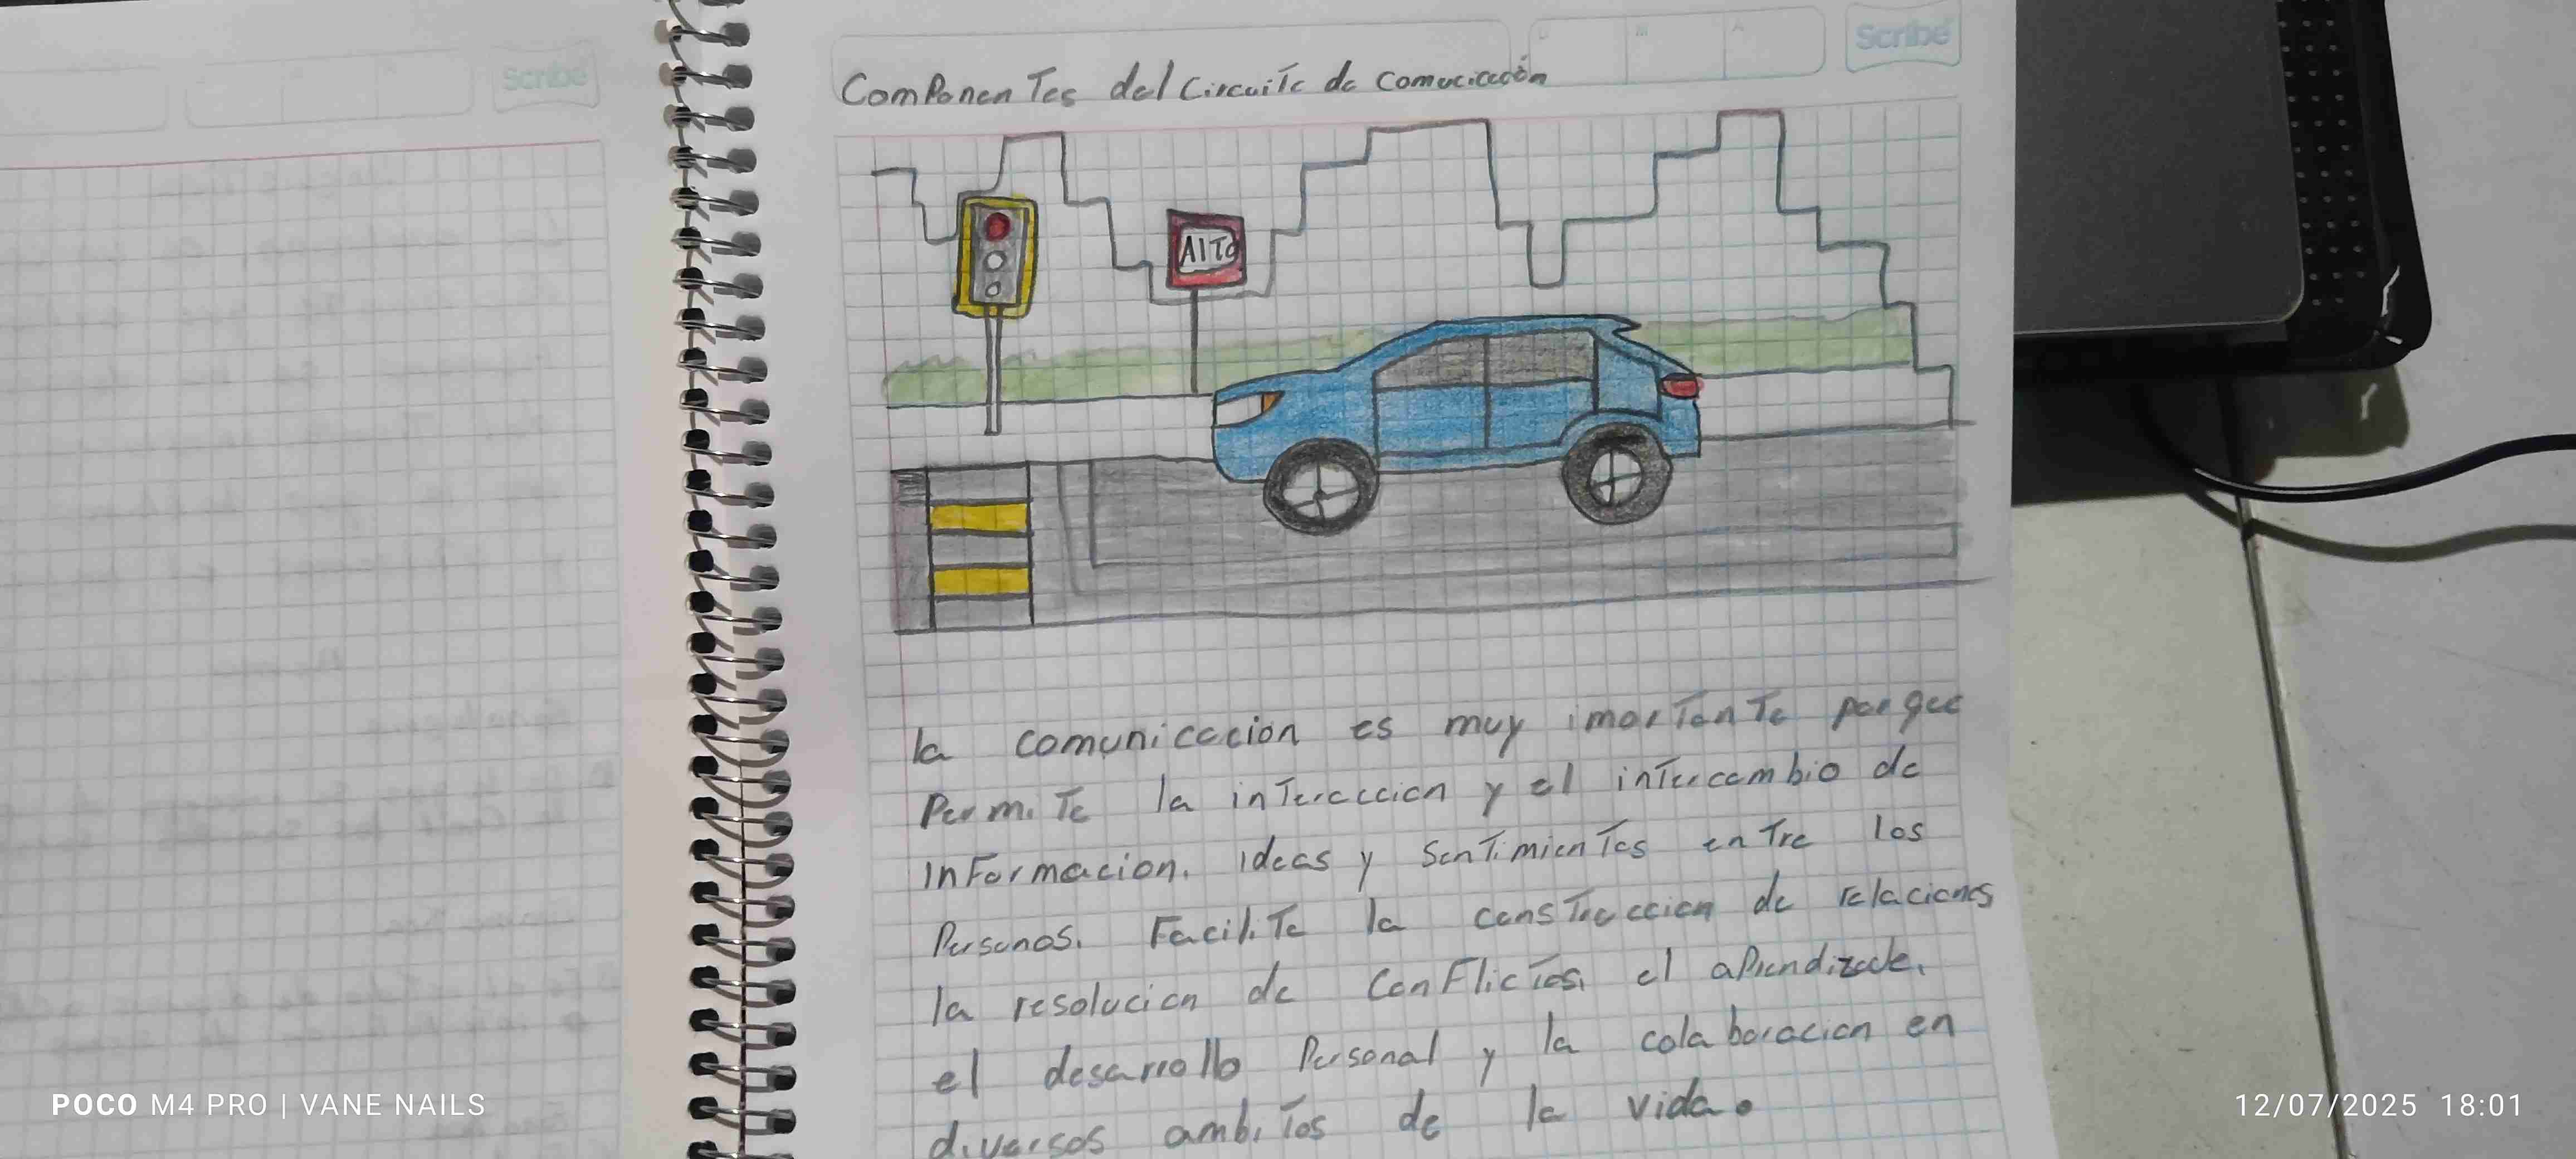 Scribe
Scribe
Componentes del Circuito de comucicación
AlTo
la comunicación es muy imortante porque
Permite la interaccion y el intercambio de
informacion. ideas y sentimientos entre los
Personas. Facilite la construccion de relaciones
la resolucion de conflictos, el aprendizade.
el desarrollo Personal y la colaboracion en
diversos ambitos de la vida.
POCO M4 PRO | VANE NAILS
12/07/2025 18:01